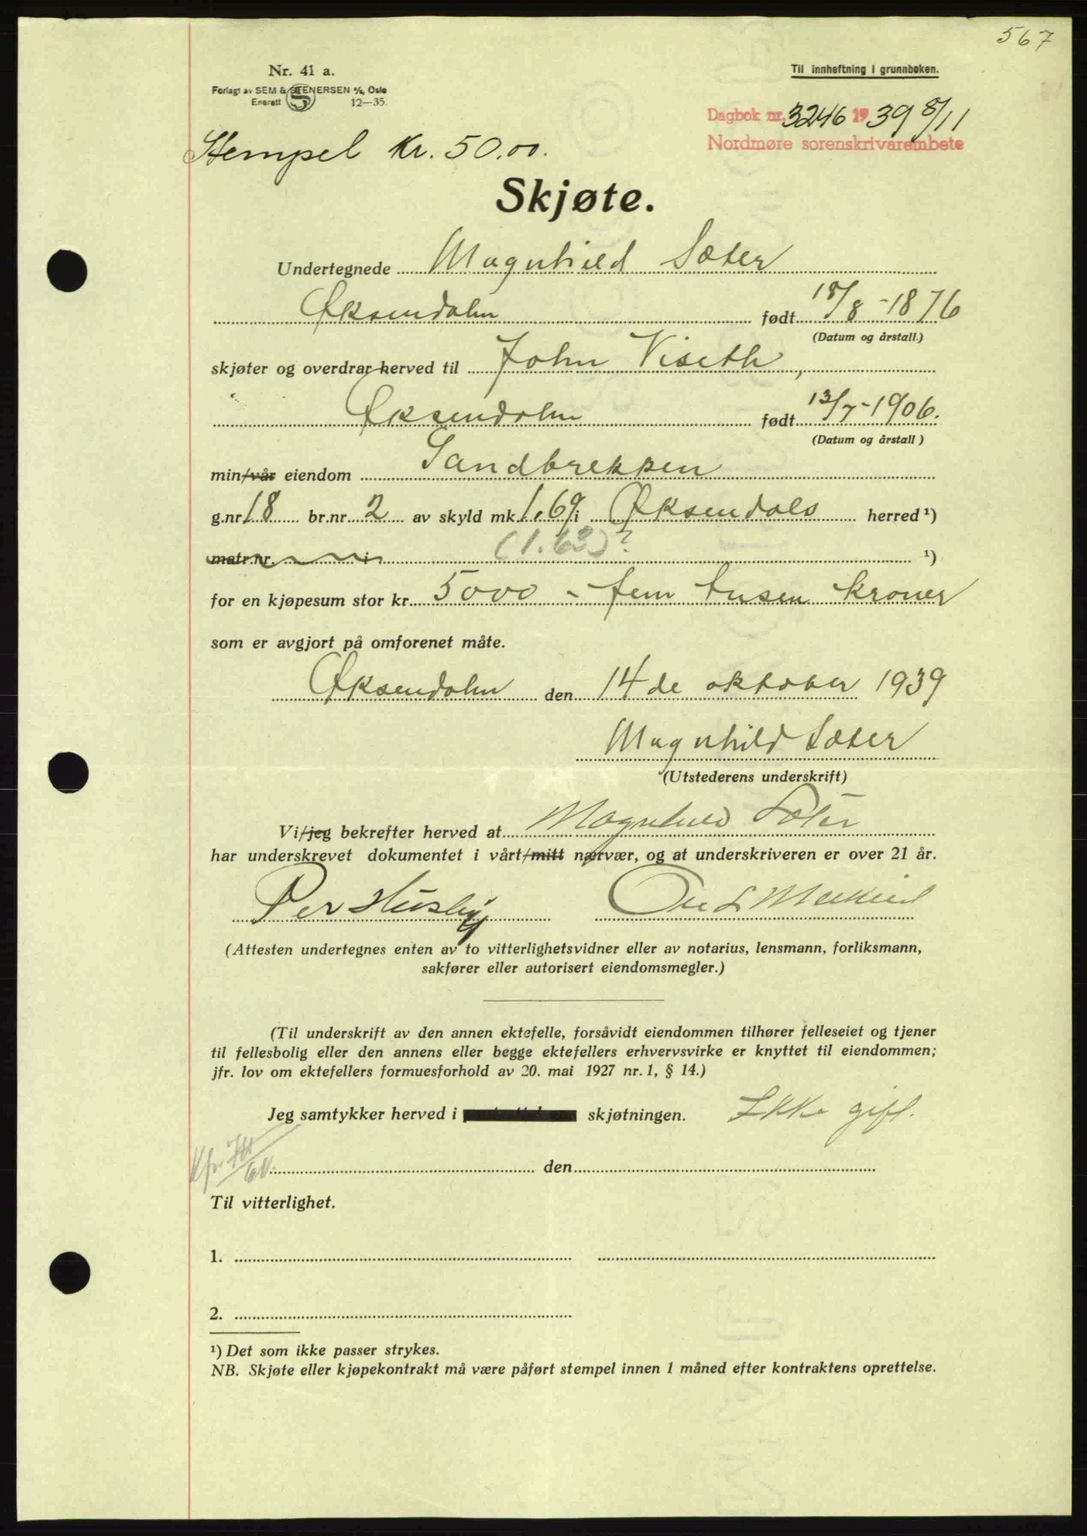 567
Nr. 41 a.
Forlagt av SEM & STENERSEN A/S, Oslo
Enerett 12—35.
Til innheftning i grunnboken.
Dagbok nr. 3246 1939 8/11
Nordmøre sorenskriverembete
Stempel kr. 50.00.
Skjøte.
Undertegnede Magnhild Sæter
Øksendalen født 18/8-1876
(Datum og årstall.)
skjøter og overdrar herved til John Viseth,
Øksendalen født 13/7-1906.
(Datum og årstall)
min/vår eiendom Sandbrekken
g.nr 18 br.nr 2 av skyld mk 1.69 i Øksendals herred ¹)
matr.nr. i (1.63)? ¹)
for en kjøpesum stor kr. 5000 - fem tusen kroner
som er avgjort på omforenet måte.
Øksendalen den 14de oktober 1939
Magnhild Sæter
(Utstederens underskrift)
Vi/jeg bekrefter herved at Magnhild Sæter
har underskrevet dokumentet i vårt/mitt nærvær, og at underskriveren er over 21 år.
Per Husby
(Attesten undertegnes enten av to vitterlighetsvidner eller av notarius, lensmann, forliksmann,
sakfører eller autorisert eiendomsmegler.)
(Til underskrift av den annen ektefelle, forsåvidt eiendommen tilhører felleseiet og tjener
til fellesbolig eller den annens eller begge ektefellers erhvervsvirke er knyttet til eiendommen;
jfr. lov om ektefellers formuesforhold av 20. mai 1927 nr. 1, § 14.)
Jeg samtykker herved i skjøtningen. Ikke gift.
den
Til vitterlighet.
1.
2.
¹) Det som ikke passer strykes.
NB. Skjøte eller kjøpekontrakt må være påført stempel innen 1 måned efter kontraktens oprettelse.